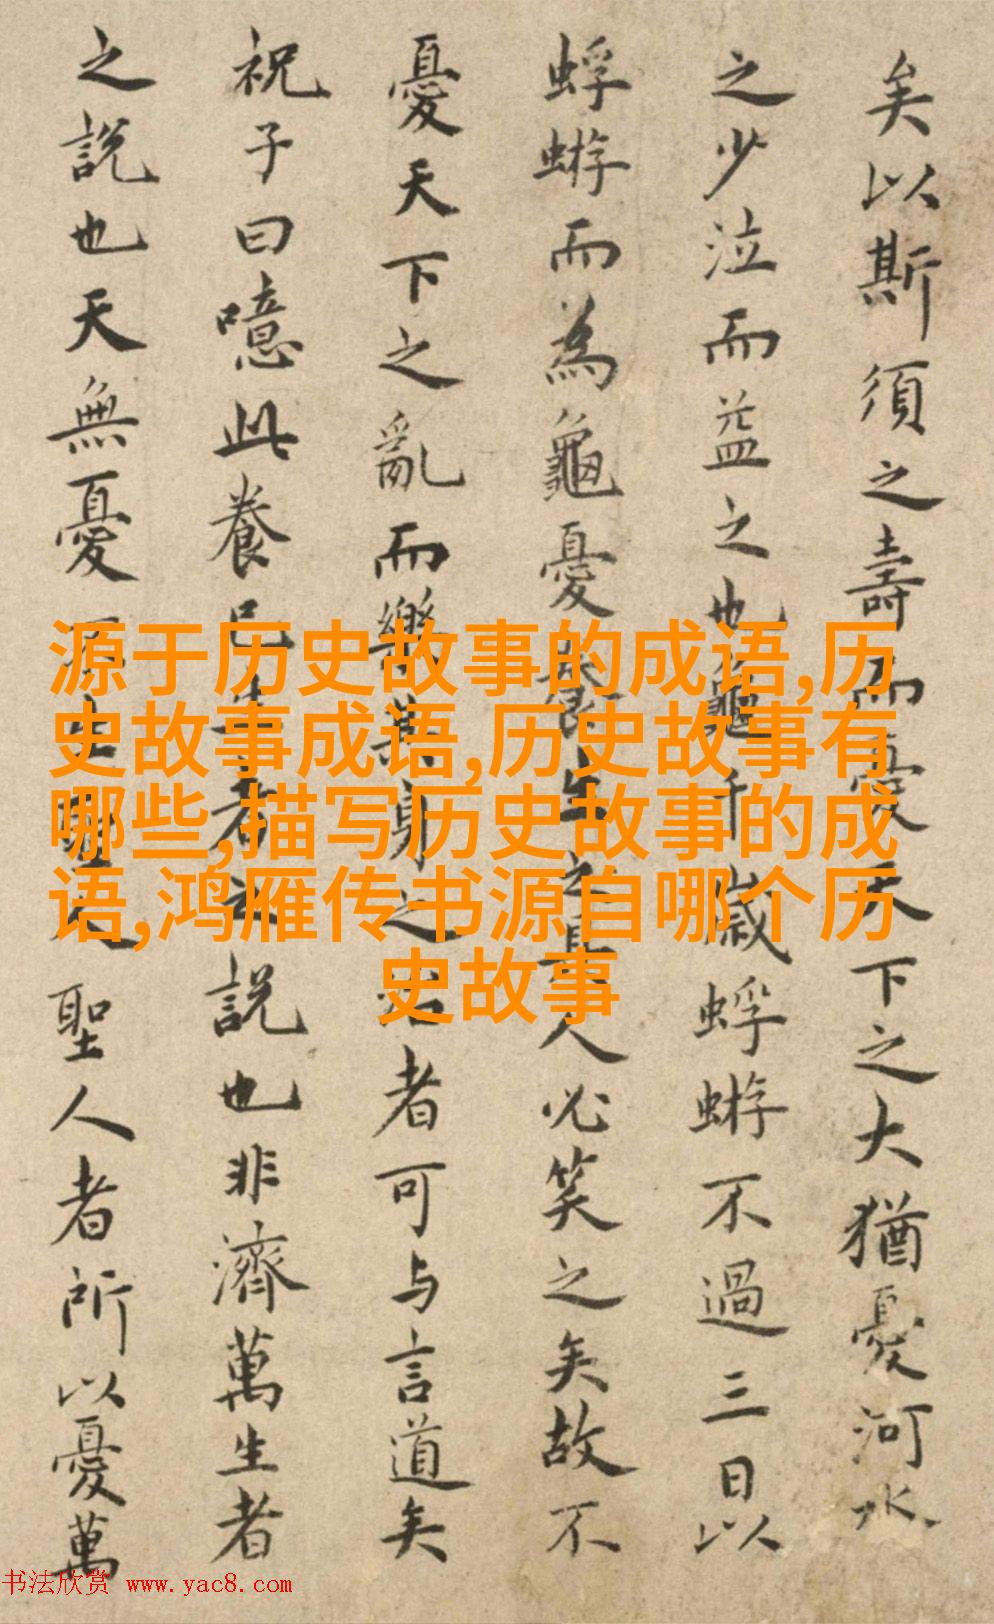 矣以斯須之壽而憂天下之大猶憂河水
之少泣而益之也龜千歲蜉蝣不過三日以
蜉蝣而為龜憂養生之具人必笑之矣故不
憂天下之亂而樂其身之治者可与言道矣
祝子曰噫此養己生者之說也非濟萬生者
之說也天無憂而生聖人聖人者所以憂萬
源于历史故事的成语,历
史故事成语,历史故事有
哪些,描写历史故事的成
语,鸿雁传书源自哪个历
史故事
书法欣赏 www.yac8.com